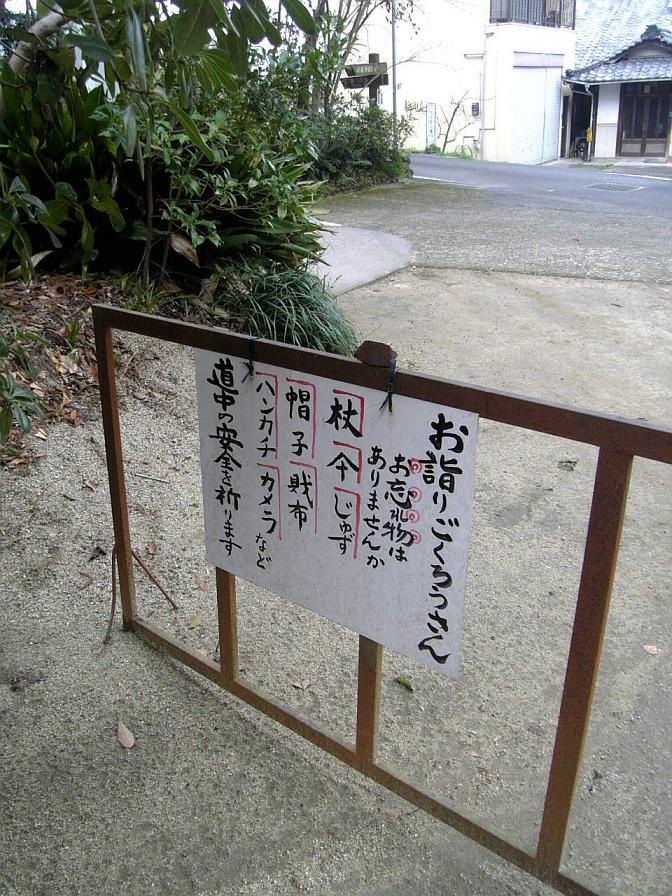 お詣りごくろうさん
お忘れ物は
ありませんか
杖 傘 じゅず
帽子 財布
ハンカチ カメラ など
道中の安全を祈ります